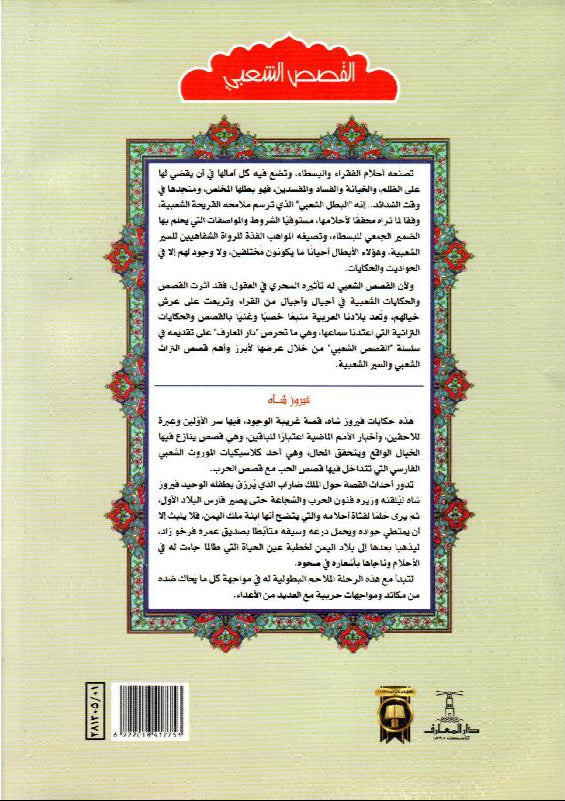 القصص الشعبي
تصنعه أحلام الفقراء والبسطاء، وتضع فيه كل آمالها في أن يقضي لها
على الظلم، والخيانة والفساد والمفسدين، فهو بطلها المخلص، ومنجدها في
وقت الشدائد.. إنه "البطل الشعبي" الذي ترسم ملامحه القريحة الشعبية،
وفقًا لما تراه محققًا لأحلامها، مستوفيًا الشروط والمواصفات التي يحلم بها
الضمير الجمعي للبسطاء، وتضيفه المواهب الفذة للرواة الشفاهيين للسير
الشعبية، وهؤلاء الأبطال أحيانًا ما يكونون مختلقين، ولا وجود لهم إلا في
الحواديت والحكايات.
ولأن القصص الشعبي له تأثيره السحري في العقول، فقد أثرت القصص
والحكايات الشعبية في أجيال وأجيال من القراء وتربعت على عرش
خيالهم، وتعد بلادنا العربية منبعًا خصبًا وغنيًا بالقصص والحكايات
التراثية التي اعتدنا سماعها، وهي ما تحرص "دار المعارف" على تقديمه في
سلسلة "القصص الشعبي" من خلال عرضها لأبرز وأهم قصص التراث
الشعبي والسير الشعبية.
فيروز شاه
هذه حكايات فيروز شاه، قصة غريبة الوجود، فيها سر الأوّلين وعبرة
للآحقين، وأخبار الأمم الماضية اعتبارًا للباقين، وهي قصص ينازع فيها
الخيال الواقع ويتحقق المحال، وهي أحد كلاسيكيات الموروث الشعبي
الفارسي التي تتداخل فيها قصص الحب مع قصص الحرب.
تدور أحداث القصة حول الملك ضاراب الذي يُرزق بطفله الوحيد فيروز
شاه ليُلقنه وزيره فنون الحرب والشجاعة حتى يصير فارس البلاد الأول،
ثم يرى حلمًا لفتاة أحلامه والتي يتضح أنها ابنة ملك اليمن، فلا ينبث إلا
أن يمتطي جواده ويحمل درعه وسيفه متأبطًا بصديق عمره فرخو زاد،
ليذهبا بعدها إلى بلاد اليمن لخطبة عين الحياة التي طالما جاءت له في
الأحلام وناجاها بأشعاره في صحوه.
لتبدأ مع هذه الرحلة الملاحم البطولية له في مواجهة كل ما يحاك ضده
من مكائد ومواجهات حربية مع العديد من الأعداء.
٢٨١٣٠٥/٠١
دار المعارف